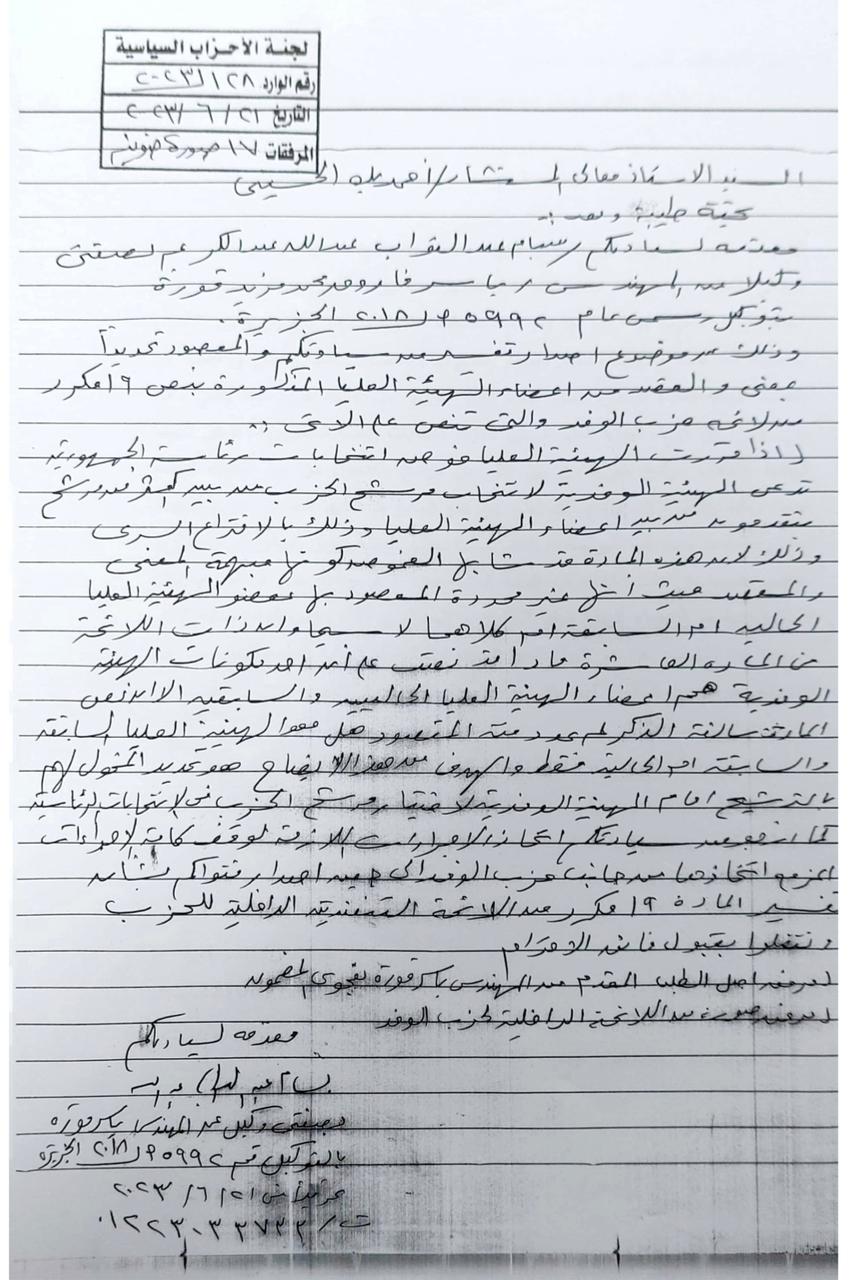 لجنة الأحزاب السياسية
رقم الوارد ١٢٨ / ٢٠٢٣
التاريخ ٢١ / ٦ / ٢٠٢٣
المرفقات ١٧ صورة ضوئية
السيد الاستاذ معالى المستشار / احمد الحسينى
تحية طيبة وبعد :-
مقدمه لسيادتكم / بسام عبد التواب عبدالله عبدالكريم بصفتى
وكيلا عن المهندس / ياسر فاروق محمد مزيد قورة
بتوكيل رسمى عام ٥٩٩٢ لسنة ٢٠١٨ الجزيرة .
وذلك عن موضوع اصدار تفسير من سيادتكم والمقصود تحديداً
بمعنى والقصد من اعضاء الهيئة العليا المذكورة بنص ١٩ مكرر
من لائحه حزب الوفد والتى تنص على الاتى :.
اذا قررت الهيئة العليا خوض انتخابات رئاسة الجمهورية
تدعى الهيئة الوفدية لانتخاب مرشح الحزب من بين اكثر من مرشح
يتقدمون من بين اعضاء الهيئة العليا وذلك بالاقتراع السرى
وذلك لان هذه المادة قد شابها الغموض كونها مبهمة المعنى
والمقصد حيث أنها غير محددة المقصود بها عضو الهيئة العليا
الحالية ام السابقة ام كلاهما لاسيما وان ذات اللائحة
فى المادة العاشرة مادامت نصت على أن احد مكونات الهيئة
الوفدية هم اعضاء الهيئة العليا الحاليين والسابقين الا ان نص
المادة سالفة الذكر لم يحدد منة المقصود هل هو الهيئة العليا السابقة
والسابقة ام الحالية فقط والهدف من هذا الايضاح هو تحديد المخول لهم
بالترشيح امام الهيئة الوفدية لاختيار مرشح الحزب فى الانتخابات الرئاسية
كما نرجو من سيادتكم اتخاذ الاجراءات اللازمة لوقف كافة الاجراءات
المزمع اتخاذها من جانب حزب الوفد الى حين اصدار فتواكم بشأن
تفسير المادة ١٩ مكرر من اللائحة التنفيذية الداخلية للحزب
وتفضلوا بقبول فائق الاحترام
مرفق اصل الطلب المقدم من المهندس ياسر قورة بفحوى المضمون
مرفق صورة من اللائحة الداخلية لحزب الوفد
مقدمه لسيادتكم
بسام عبد التواب عبدالله
بصفتى وكيل عن المهندس ياسر قورة
بالتوكيل رقم ٥٩٩٢ لسنة ٢٠١٨ الجزيرة
تحريرا فى ٢١ / ٦ / ٢٠٢٣
ت / ٠١٢٢٣٠٣٣٧٣٣